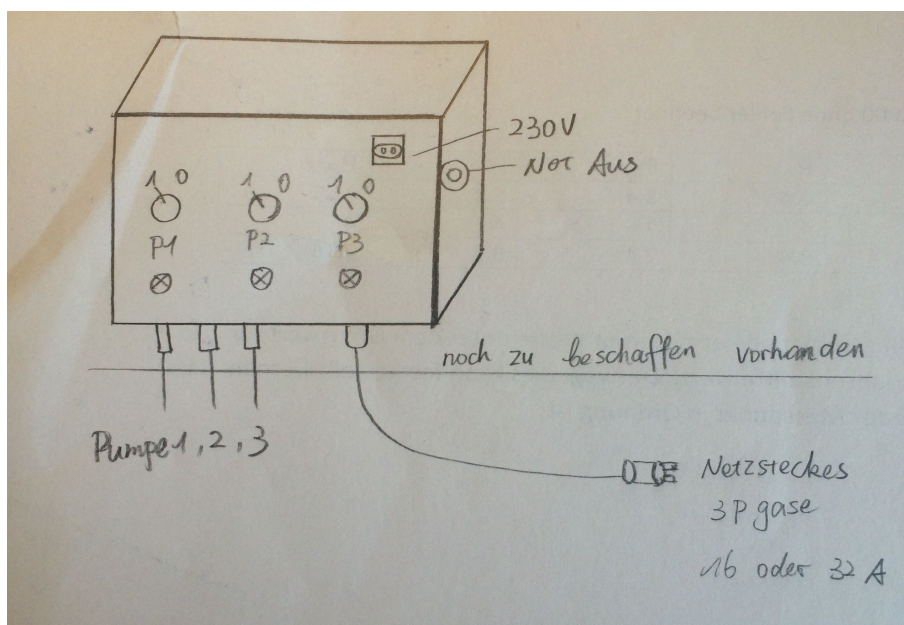 230V
Not Aus
1 0 1 0 1 0
P1 P2 P3
noch zu beschaffen vorhanden
Pumpe 1, 2, 3
Netzsteckes
3 P gase
16 oder 32 A